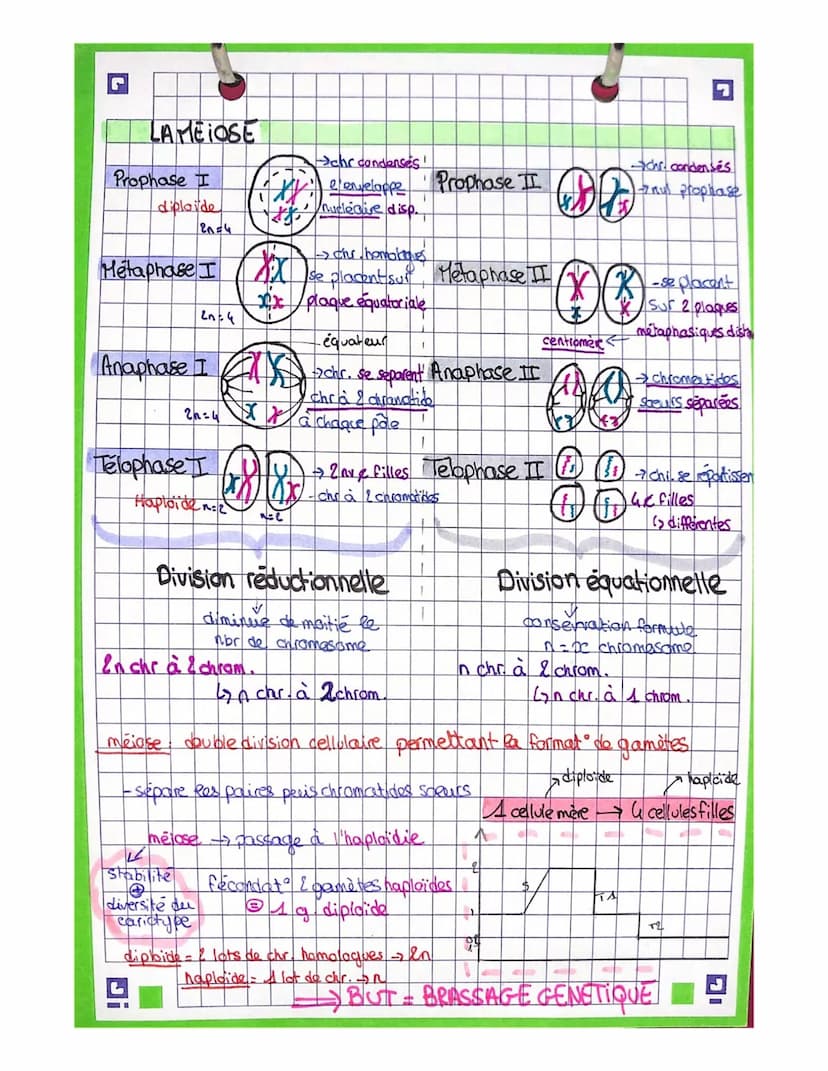 LA MÉIOSE
Prophase I
diploïde
2n=4
→chr condensés
l'enveloppe
nucléaire disp.
Prophase II
→chr. condensés
→nvl prophase
Métaphase I
2n=4
→ chr. homologues
se placent sur
plaque équatoriale
Métaphase II
-se placent
sur 2 plaques
métaphasiques dist
centromère
équateur
Anaphase I
2n=4
→chr. se separent
chr à 2 chromatide
à chaque pôle
Anaphase II
→ chromatides
soeurs séparées
Télophase I
Haploïde n=2
n=2
→ 2 nv filles
- chr à 2 chromatides
Telophase II
→ chr. se répartissen
4 filles
↳ différentes
Division réductionnelle
diminue de moitié le
nbr de chromosome
2n chr à 2 chrom.
↳ n chr. à 2chrom.
Division équationnelle
conservation formule
n = chromosome
n chr. à 2 chrom.
↳ n chr. à 1 chrom.
méiose : double division cellulaire permettant la format° de gamètes
- sépare les paires puis chromatides soeurs
méiose → passage à l'haploïdie
stabilité
+
diversité du
cariotype
fécondat° 2 gamètes haploïdes
= 1 g. diploïde
diploïde = 2 lots de chr. homologues → 2n
haploïde = 1 lot de chr. → n
diploïde
haploïde
1 cellule mère → 4 cellules filles
2
S
T1
1
T2
0,5
⇒ BUT = BRASSAGE GENETIQUE